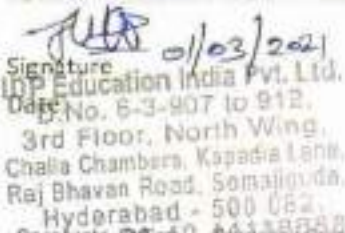 01/03/2021
Signature
IDP Education India Pvt. Ltd.
Date D.No. 6-3-907 to 912,
3rd Floor, North Wing,
Challa Chambers, Kapadia Lane,
Raj Bhavan Road, Somajiguda,
Hyderabad - 500 082.